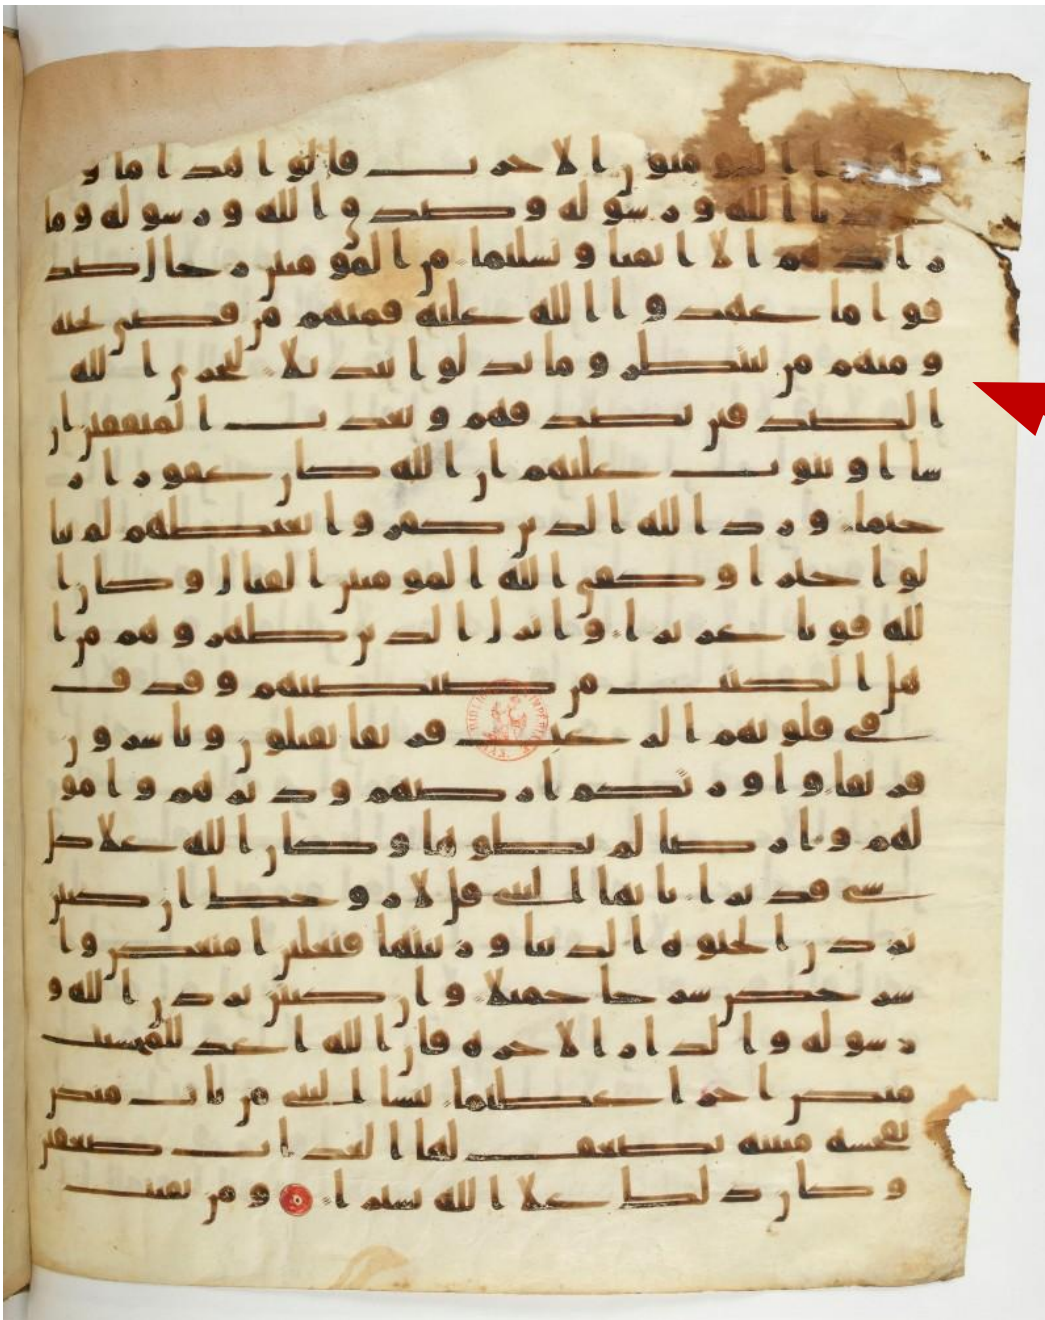 ولما را المومنون الاحزب قالوا هذا ما و
عدنا الله ورسوله وصدق الله ورسوله وما
زادهم الا ايمنا وتسليما من المومنين رجال صد
قوا ما عهدوا الله عليه فمنهم من قضى نحبه
ومنهم من ينتظر وما بدلوا تبديلا ليجزي الله
الصدقين بصدقهم ويعذب المنفقين ان
شا او يتوب عليهم ان الله كان غفورا ر
حيما ورد الله الذين كفروا بغيظهم لم ينا
لوا خيرا وكفى الله المومنين القتال وكان ا
لله قويا عزيزا وانزل الذين ظهروهم من ا
هل الكتب من صيصيهم وقذف
في قلوبهم الرعب فريقا تقتلون وتاسرون
فريقا واورثكم ارضهم وديرهم وامو
لهم وارضا لم تطوها وكان الله على كل
شي قديرا يايها النبي قل لازوجك ان كنتن
تردن الحيوة الدنيا وزينتها فتعلين امتعكن وا
سرحكن سراحا جميلا وان كنتن تردن الله و
رسوله والدار الاخرة فان الله اعد للمحسنت
منكن اجرا عظيما ينسا النبي من يات منكن
بفحشة مبينة يضعف لها العذاب ضعفين
وكان ذلك على الله يسيرا ومن يقنت